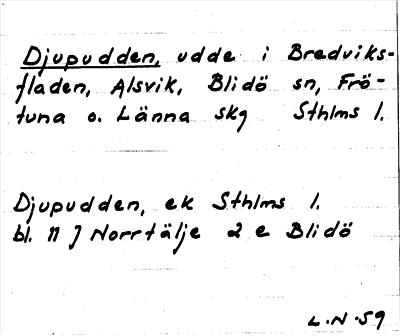 Djupudden, udde i Bredviks-
fladen, Alsvik, Blidö sn, Frö-
tuna o. Länna skg Sthlms l.
Djupudden, ek Sthlms l.
bl. 11 J Norrtälje 2 e Blidö
L.N.59